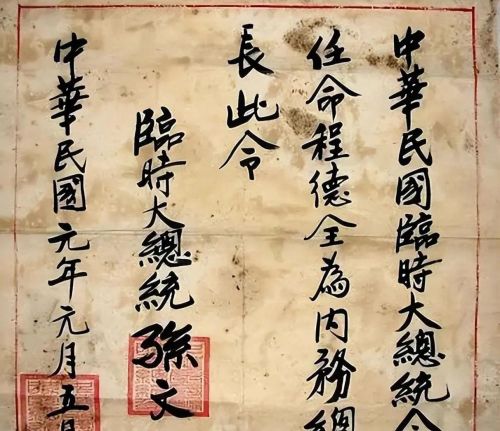 中華民國臨時大總統令
任命程德全為内務總
長此令
臨時大總統孫文
中華民國元年元月五日